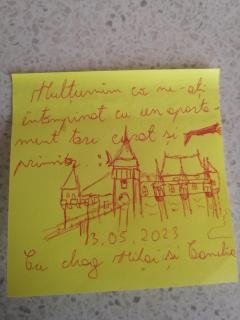 Mulțumim că ne-ați
întâmpinat cu un aparta-
ment tare curat și
primitor :)
3.05.2023
Cu drag Mihai și Camelia